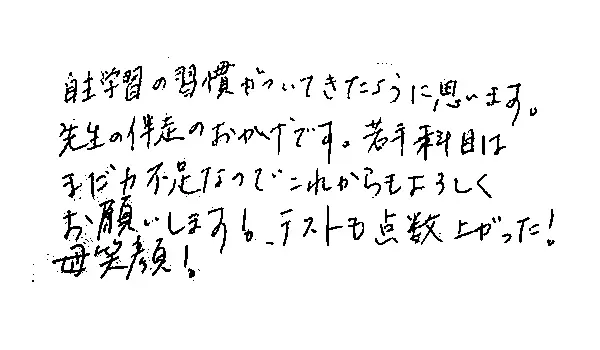 自主学習の習慣がついてきたように思います。
先生の伴走のおかげです。苦手科目は
まだ力不足なのでこれからもよろしく
お願いします！、テストも点数上がった！
母笑顔！